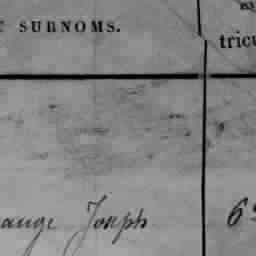 T SURNOMS.
tricu
ange Joseph 6